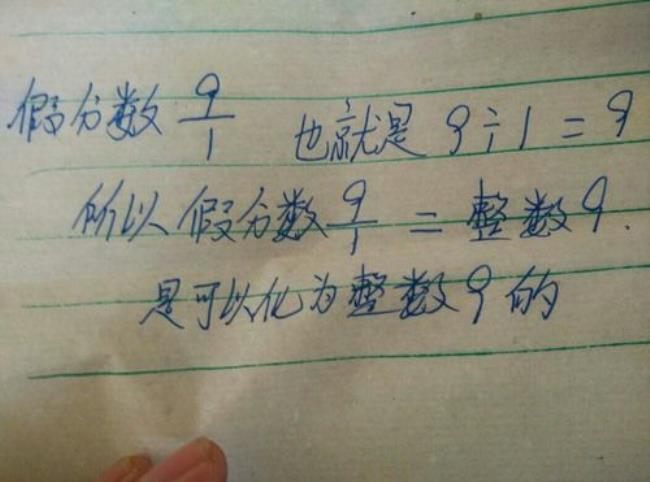 假分数 9/1 也就是 9÷1=9
所以假分数 9/1 = 整数9.
是可以化为整数9的